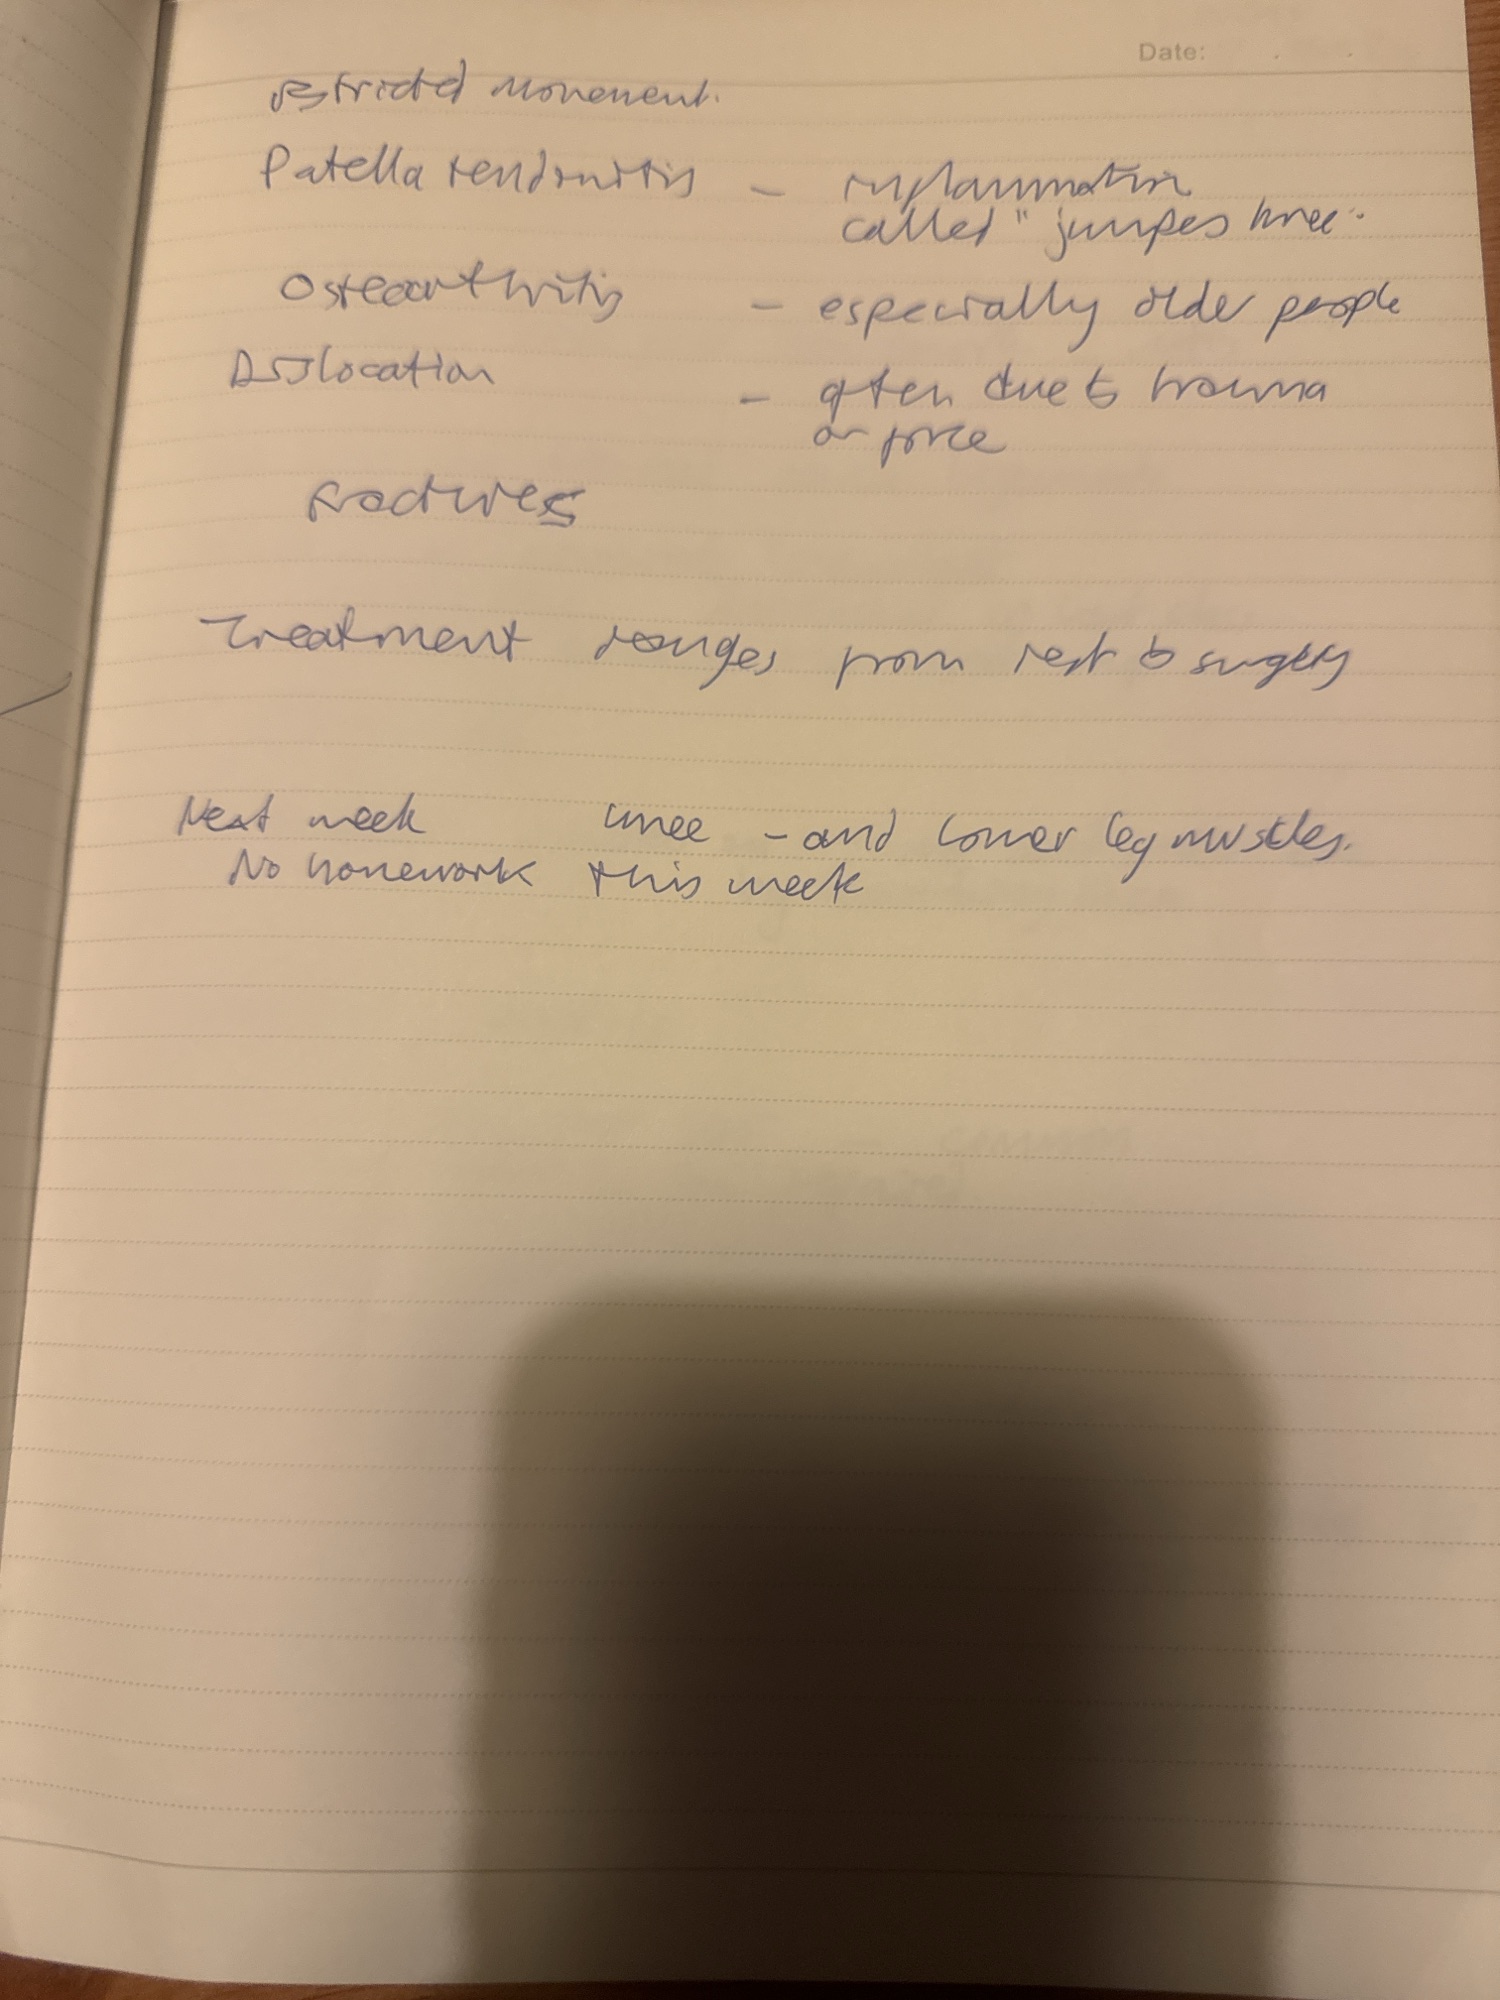 Date:
restricted movement.
Patella tendonitis - inflammation
called "jumpes knee".
Osteoarthritis - especially older people
Dislocation - often due to trauma
or force
Fractures
Treatment ranges from rest to surgery
Next week knee - and lower leg muscles.
No homework this week